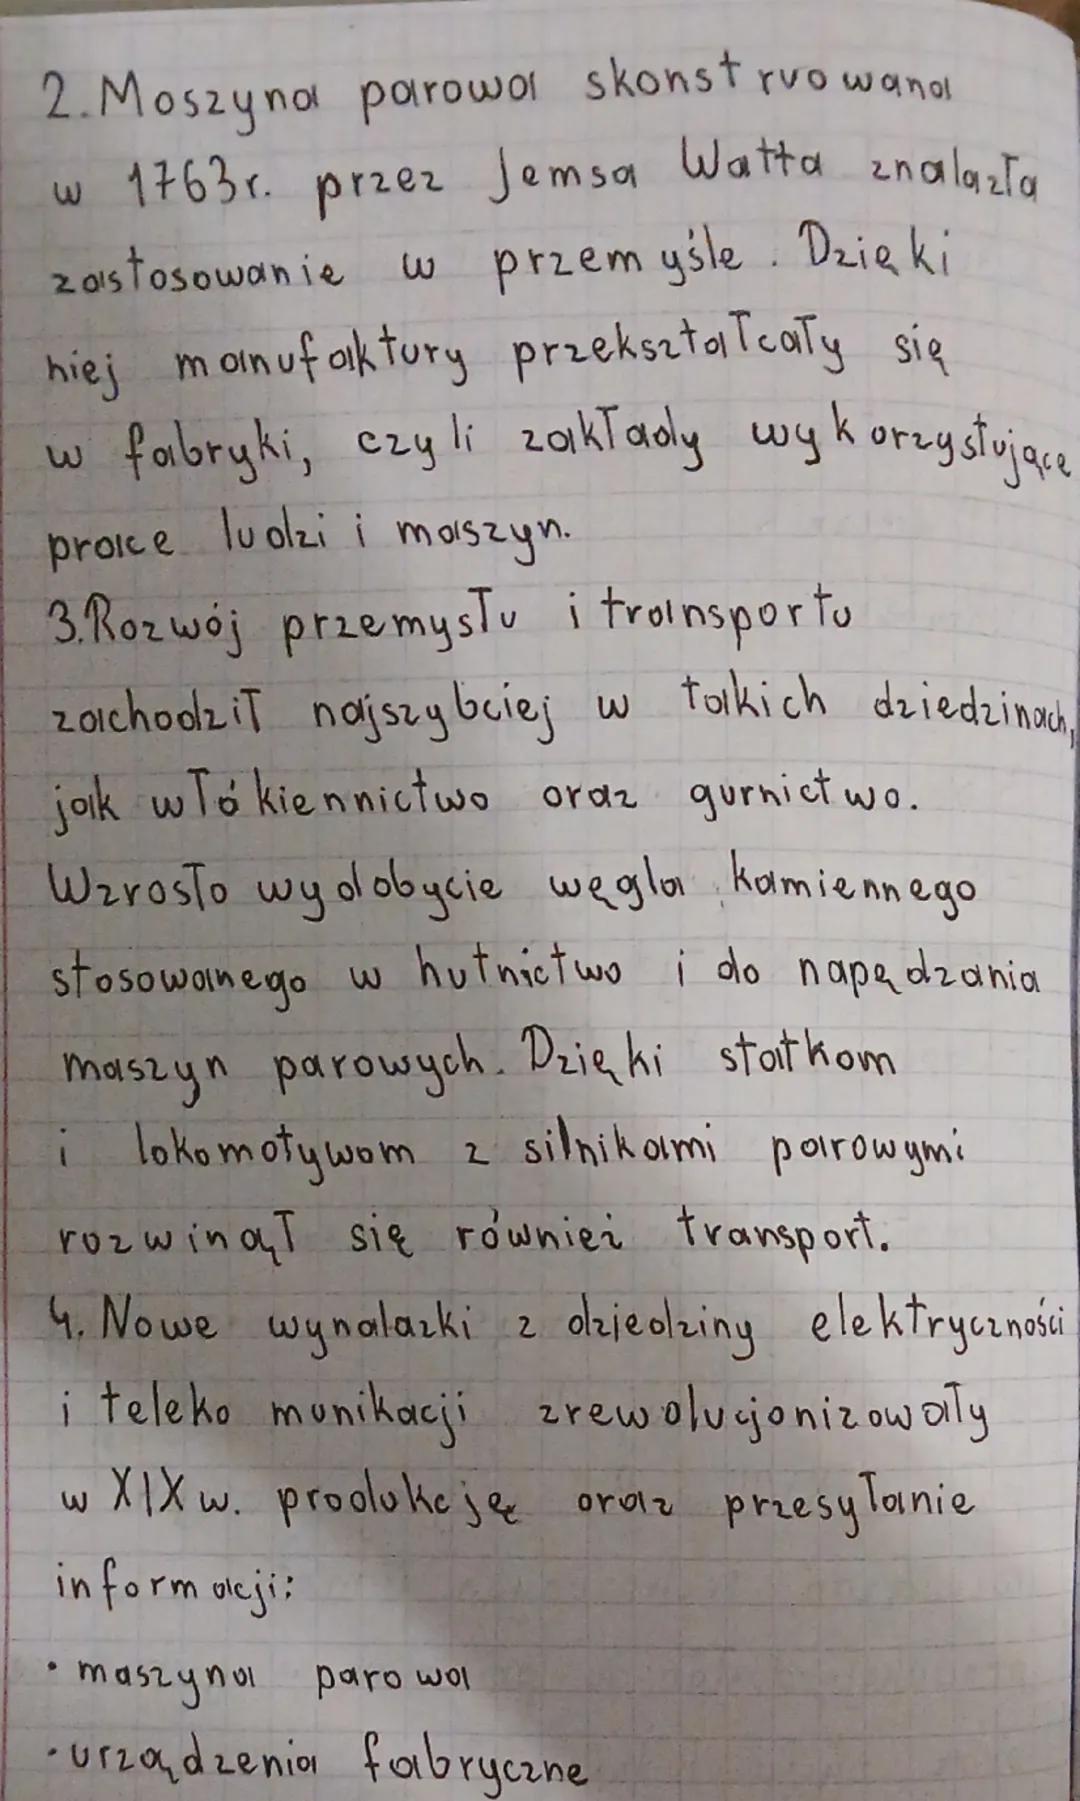 2. Maszyna parowa skonstruowana
w 1763r. przez Jemsa Watta znalazła
zastosowanie w przemyśle. Dzięki
niej manufaktury przekształcały się
w fabryki, czyli zakłady wykorzystujące
prace ludzi i maszyn.
3. Rozwój przemysłu i transportu
zachodził najszybciej w takich dziedzinach,
jak włókiennictwo oraz gurnictwo.
Wzrosło wydobycie węgla kamiennego
stosowanego w hutnictwo i do napędzania
maszyn parowych. Dzięki statkom
i lokomotywom z silnikami parowymi
rozwinął się również transport.
4. Nowe wynalazki z dziedziny elektryczności
i telekomunikacji zrewolucjonizowały
w XIX w. produkcję oraz przesyłanie
informacji:
• maszyna parowa
• urządzenia fabryczne